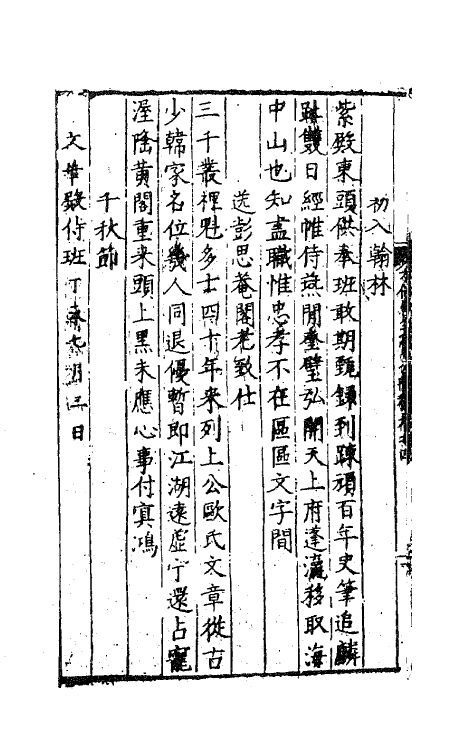 初入翰林
紫殿東頭供奉班敢期甄録到踈頑百年史筆追麟
趾雙日經帷侍燕閒奎璧弘開天上府蓬瀛移取海
中山也知盡職惟忠孝不在區區文字間
送彭思菴閣老致仕
三千叢裡魁多士四十年來列上公歐氏文章從古
少韓家名位幾人同退優暫即江湖遠虛宁還占寵
渥隆黃閣重来頭上黑未應心事付冥鴻
千秋節
文華殿侍班丁未九月三日